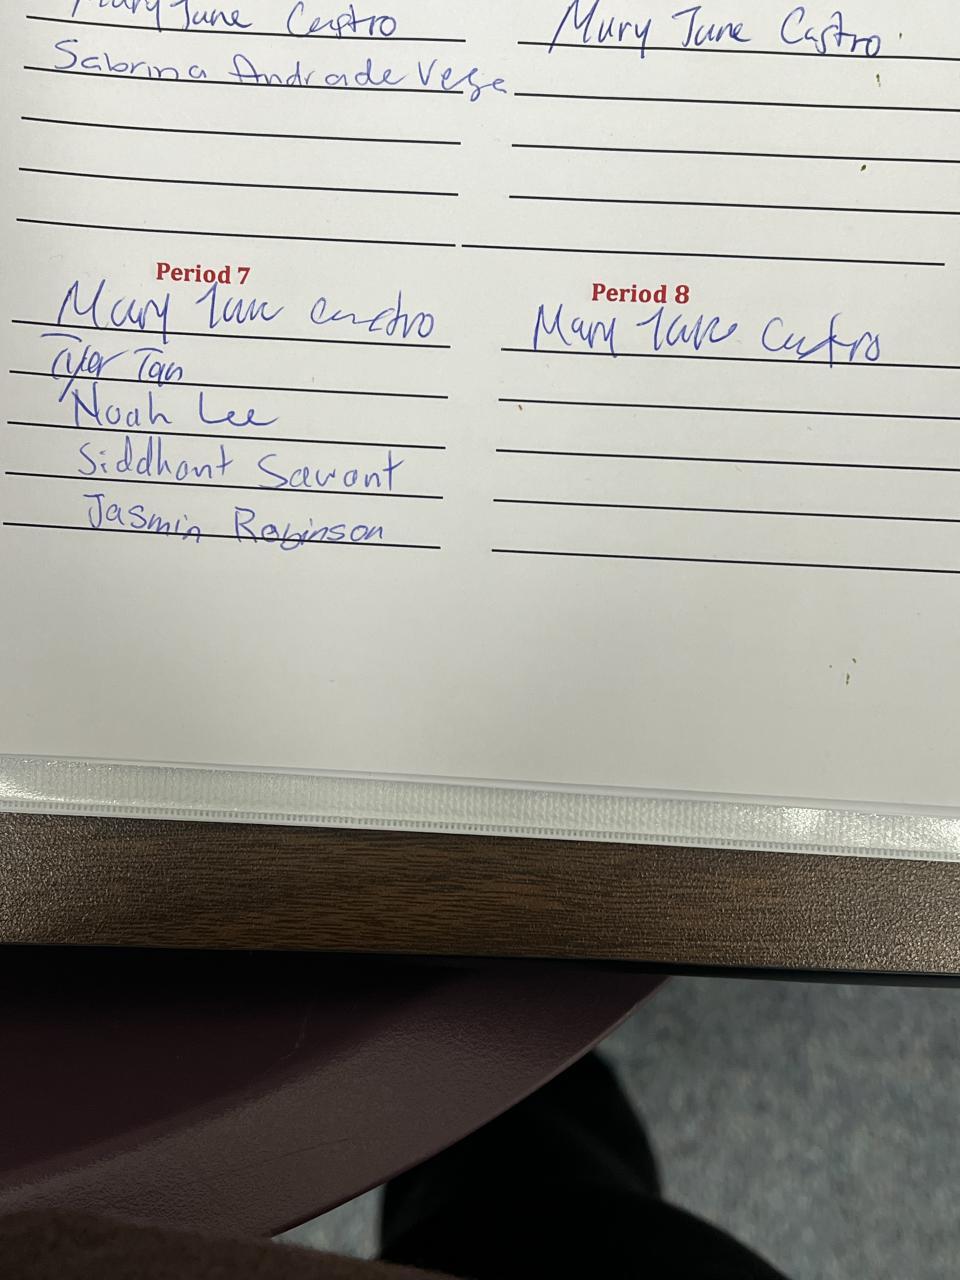 Mary June Castro
Sabrina Andrade Vega
Mary June Castro
Period 7
Mary June Castro
Tyler Tan
Noah Lee
Siddhant Sawant
Jasmin Robinson
Period 8
Mary June Castro